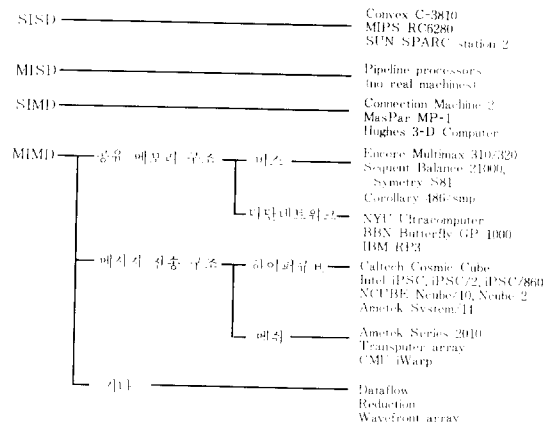 SISD
Convex C-3810
MIPS RC6280
SUN SPARC station 2
MISD
Pipeline processors
(no real machines)
SIMD
Connection Machine 2
MasPar MP-1
Hughes 3-D Computer
MIMD
공유 메모리 구조
버스
Encore Multimax 310/320
Sequent Balance 21000,
Symetry S81
Corollary 486/smp
다단네트워크
NYU Ultracomputer
BBN Butterfly GP 1000
IBM RP3
메시지 전송 구조
하이퍼큐브
Caltech Cosmic Cube
Intel iPSC, iPSC/2, iPSC/860
NCUBE Ncube/10, Ncube 2
Ametek System/14
메쉬
Ametek Series 2010
Transputer array
CMU iWarp
기타
Dataflow
Reduction
Wavefront array